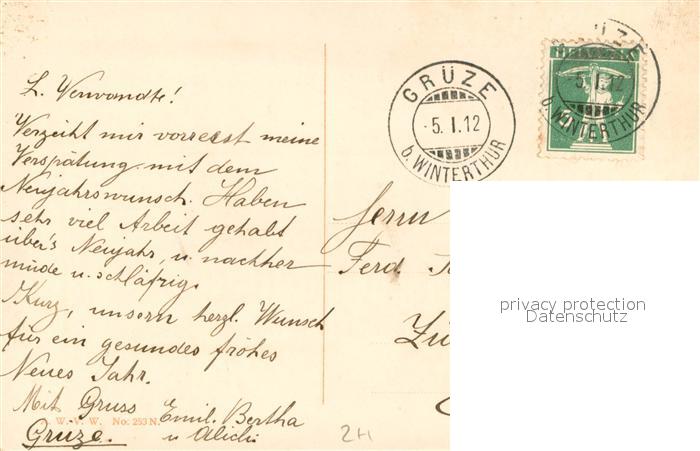 L. Verwandte!
Verzeiht mir vorrerst meine
Verspätung mit dem
Neujahrswunsch. Haben
sehr viel Arbeit gehabt
über's Neujahr, u. nachher
müde u. schläfrig.
Kurz, unsern herzl. Wunsch
für ein gesundes frohes
Neues Jahr.
Mit Gruss Emil. Bertha
u
Grüze.
W. V. W. No: 253 N.
GRÜZE
-5.I.12
b. WINTERTHUR
GRÜZE
5.I.12
b. WINTERTHUR
Herrn
Ferd.
privacy protection
Datenschutz